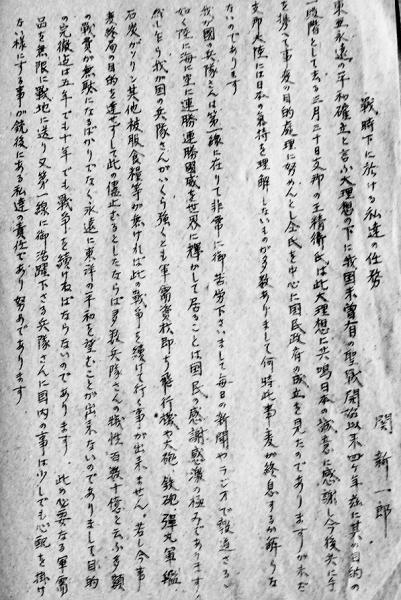 戦時下に於ける私達の任務
関新一郎
東亜永遠の平和確立と言ふ大理想の下に我国未曽有の聖戦開始以来四ケ年茲に其の目的の
一段階として去る三月三十日支那の王精衛氏は此大理想に共鳴日本の誠意に感謝し今後共に手
を携へて事変の目的処理に努めんとし全民を中心に国民政府の成立を見たのでありますが未だ
支那大陸には日本の気持を理解しないものが多数ありまして何時此事変が終息するか解らな
いのであります
我が国の兵隊さんは第一線に在って非常に御苦労下さいまして毎日の新聞やラジオで報道さるゝ
如く陸に海に空に連勝連勝国威を世界に輝かして居ることは国民感謝感激の極みであります
然しながら我が国の兵隊さんがいくら強くとも軍需資材即ち飛行機や大砲鉄砲弾丸軍艦
石炭ガソリン其他被服食糧等が無ければ此の戦争を続けて行く事が出来ません若し今事
変終局の目的を達せずして此の儘止むるとしたならば多数兵隊さんの犠牲百数十億と云ふ多額
の戦費が無駄になるばかりでなく永遠に東洋の平和を望むことが出来ないのでありまして目的
の完徹迄は五年でも十年でも戦争を続けねばならないのであります 此の必要なる軍需
品を無限に戦地に送り又第一線に御活躍下さる兵隊さんに国内の事は少しでも心配を掛け
ない様にする事が銃後にある私達の責任であり努めであります